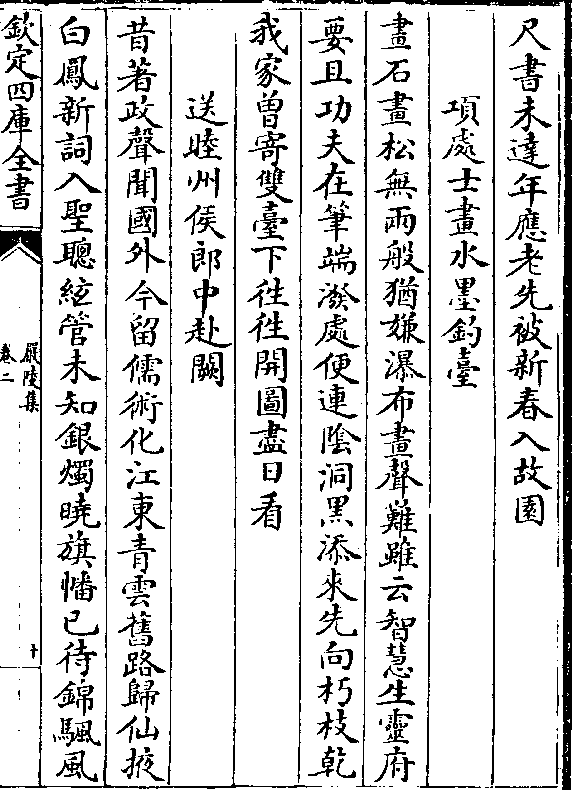 尺書未達年應老先被新春入故園
項處士畫水墨釣臺
畫石畫松無兩般猶嫌瀑布畫聲難雖云智慧生靈府
要且功夫在筆端潑處便連陰洞黑添來先向朽枝乾
我家曾寄雙臺下徃徃開圖盡日看
送睦州侯郎中赴闕
昔著政聲聞國外今留儒術化江東青雲舊路歸仙掖
白鳳新詞入聖聰絃管未知銀燭曉旗幡已待錦颿風
欽定四庫全書
嚴陵集
卷二
十